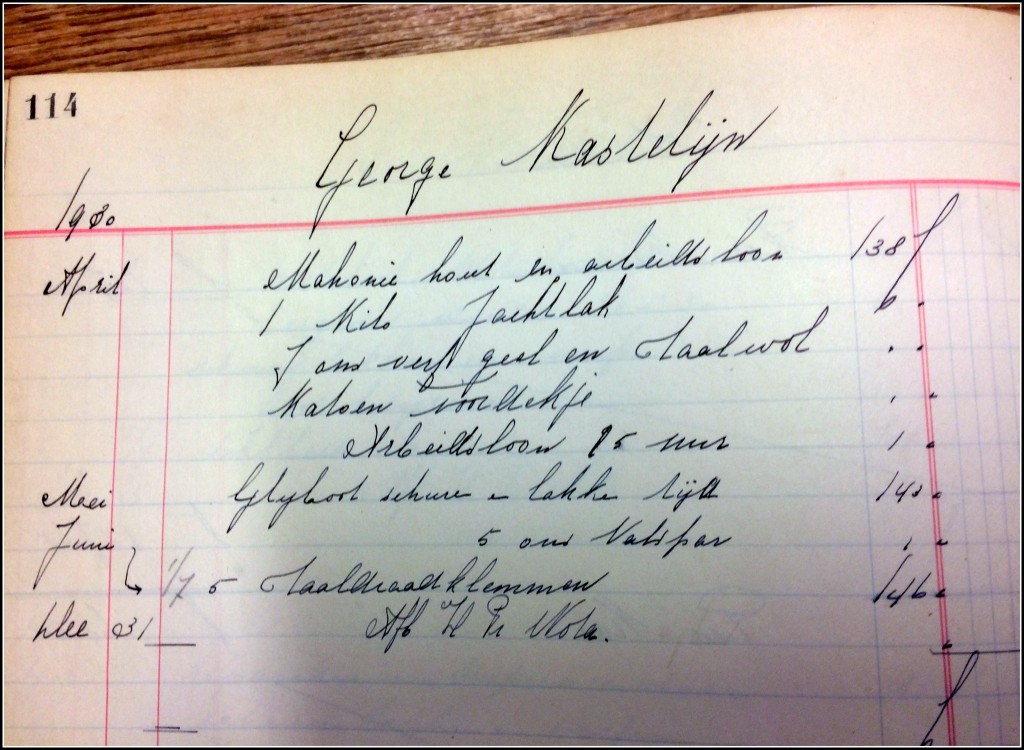 114
George Kastelijn
1930
April Mahonie hout en arbeidsloon 138 f
1 Kilo Jachtlak 6 "
ons verf geel en Staalwol " "
Katoen " "
Arbeidsloon 95 uur 1 "
Mei Glijboot schure lakke tijd 140 "
Juni 5 ons Valspar 1 "
1/7 5 Staaldraadklemmen 146 "
Dec 31 Nota.
f